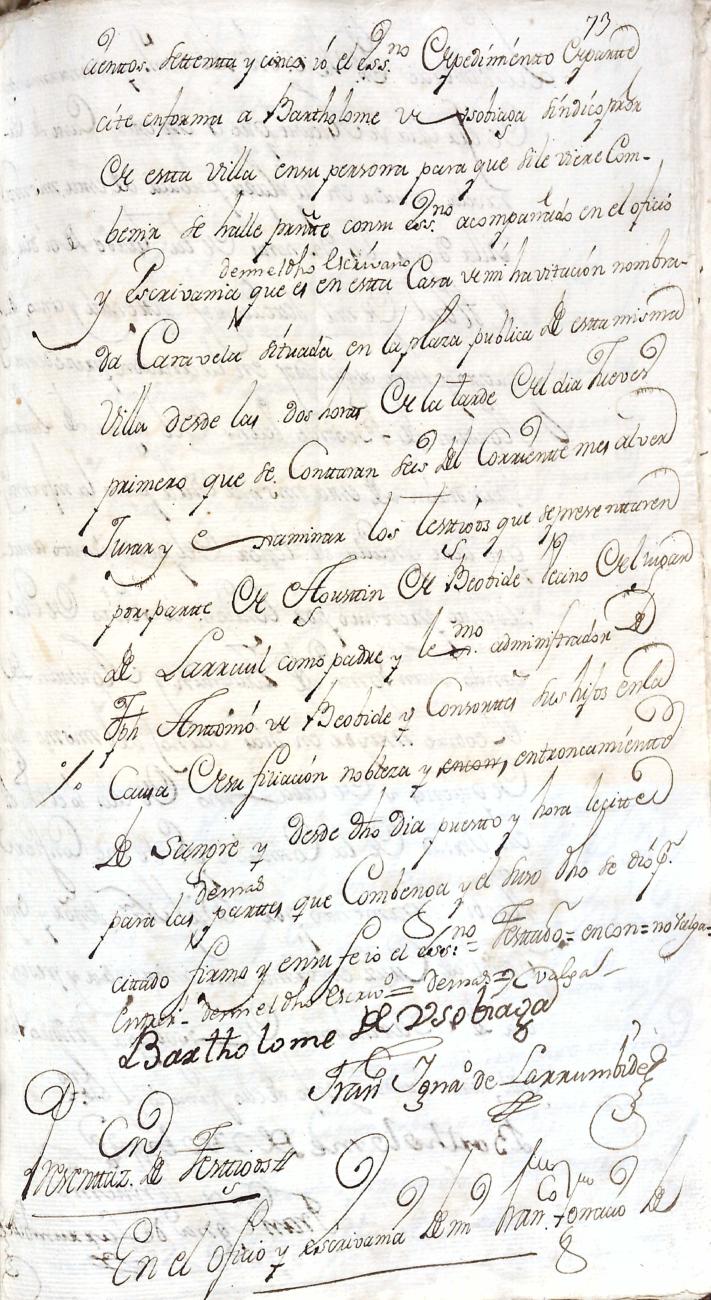 73
cienttos. settentta y cinco ió el ess.no De pedimientto De partte
cite enforma a Bartholome de Usobiaga Síndico pror
De estta Villa ensu persona para que si le viere Com-
benir se halle prnte consu ess.no acompañado en el oficio
demi el dho Escrivano
y Escrivania que es en estta Casa de mi havitación nombra-
da Caravela situada en la plaza publica del estta misma
Villa desde las dos horas De la tarde Del dia Jueves
primero que se Conttaran seis del Corrientte mes a l ver
Jurar y examinar los testtigos que se presenttaren
por partte De Agusttin De Beobide vecino Del lugar
de Larraul como padre y lexmo. administrador De
Jph Anttonio de Beobide y Consorttes sus hijos en la
Causa De su filiación nobleza y encon, entroncamientto
de Sangre y desde dho Dia puestto y hora le citte
demas
para las parttes que Combenga y el suso dho se dió p.r
cittado firmo y ensu fe io el ess.no = Testtado = encon = no valga =
Entrer.- demi el dho escriv.o = demas = valga -
Bartholome de Usobiaga
Fran Igna.o de Larrumbide
Presenttaz. de Testtigos
En el oficio y escrivania de mi Fran.co Ygnacio de